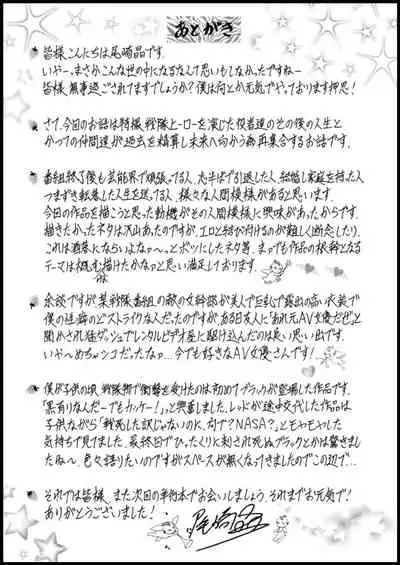 あとがき
皆様こんにちは尾崎晶です。
いやー、まさかこんな世の中になるなんて思いもしなかったですねー
皆様、無事過ごされてますでしょうか?僕は何とか元気でやっております押忍!
さて、今回のお話は特撮、戦隊ヒーローを演じた役者達のその後の人生と
かつての仲間達が過去を精算し未来へ向かう為再集合するお話です。
番組終了後も芸能界で頑張ってる人、志半ばで引退した人、結婚し家庭を持った人
つまずき転落した人生を送ってる人、様々な人間模様があると思います。
今回の作品を描こうと思った動機がその人間模様に興味があったからです。
描きたかったネタは沢山あったのですが、エロと結び付けるのが難しく断念したり、
これは洒落にならいよなぁ〜っとボツにしたネタ等、まぁでも作品の核幹となる
テーマは概ね描けたかなっと思い満足しております。
余談ですが某戦隊番組の敵の女幹部が美人で巨乳で露出の高い衣装で
僕の性癖のどストライクな人だったのですが、ある日友人に「あれ元AV女優だぜ」と
聞かされ猛ダッシュでレンタルビデオ屋に駆け込んだのは良い思い出です。
いや〜めちゃシコだったなぁ…今でも好きなAV女優さんです!
僕が子供の頃、戦隊物で衝撃を受けたのは初めてブラックが登場した作品です。
「黒有りなんだーでもカッケー!」っと興奮しました。レッドが途中交代した作品は
子供ながら「戦死した訳じゃないのK、何で?NASA?」とモヤモヤした
気持ちで見てました。最終日でひったくりに刺され死ぬブラックとかは驚きまし
たね〜。色々語りたいのですがスペースが無くなってきましたのでこの辺で…
それでは皆様、また次回の単行本でお会いしましょう。それまでお元気で!
ありがとうございました!
尾崎晶